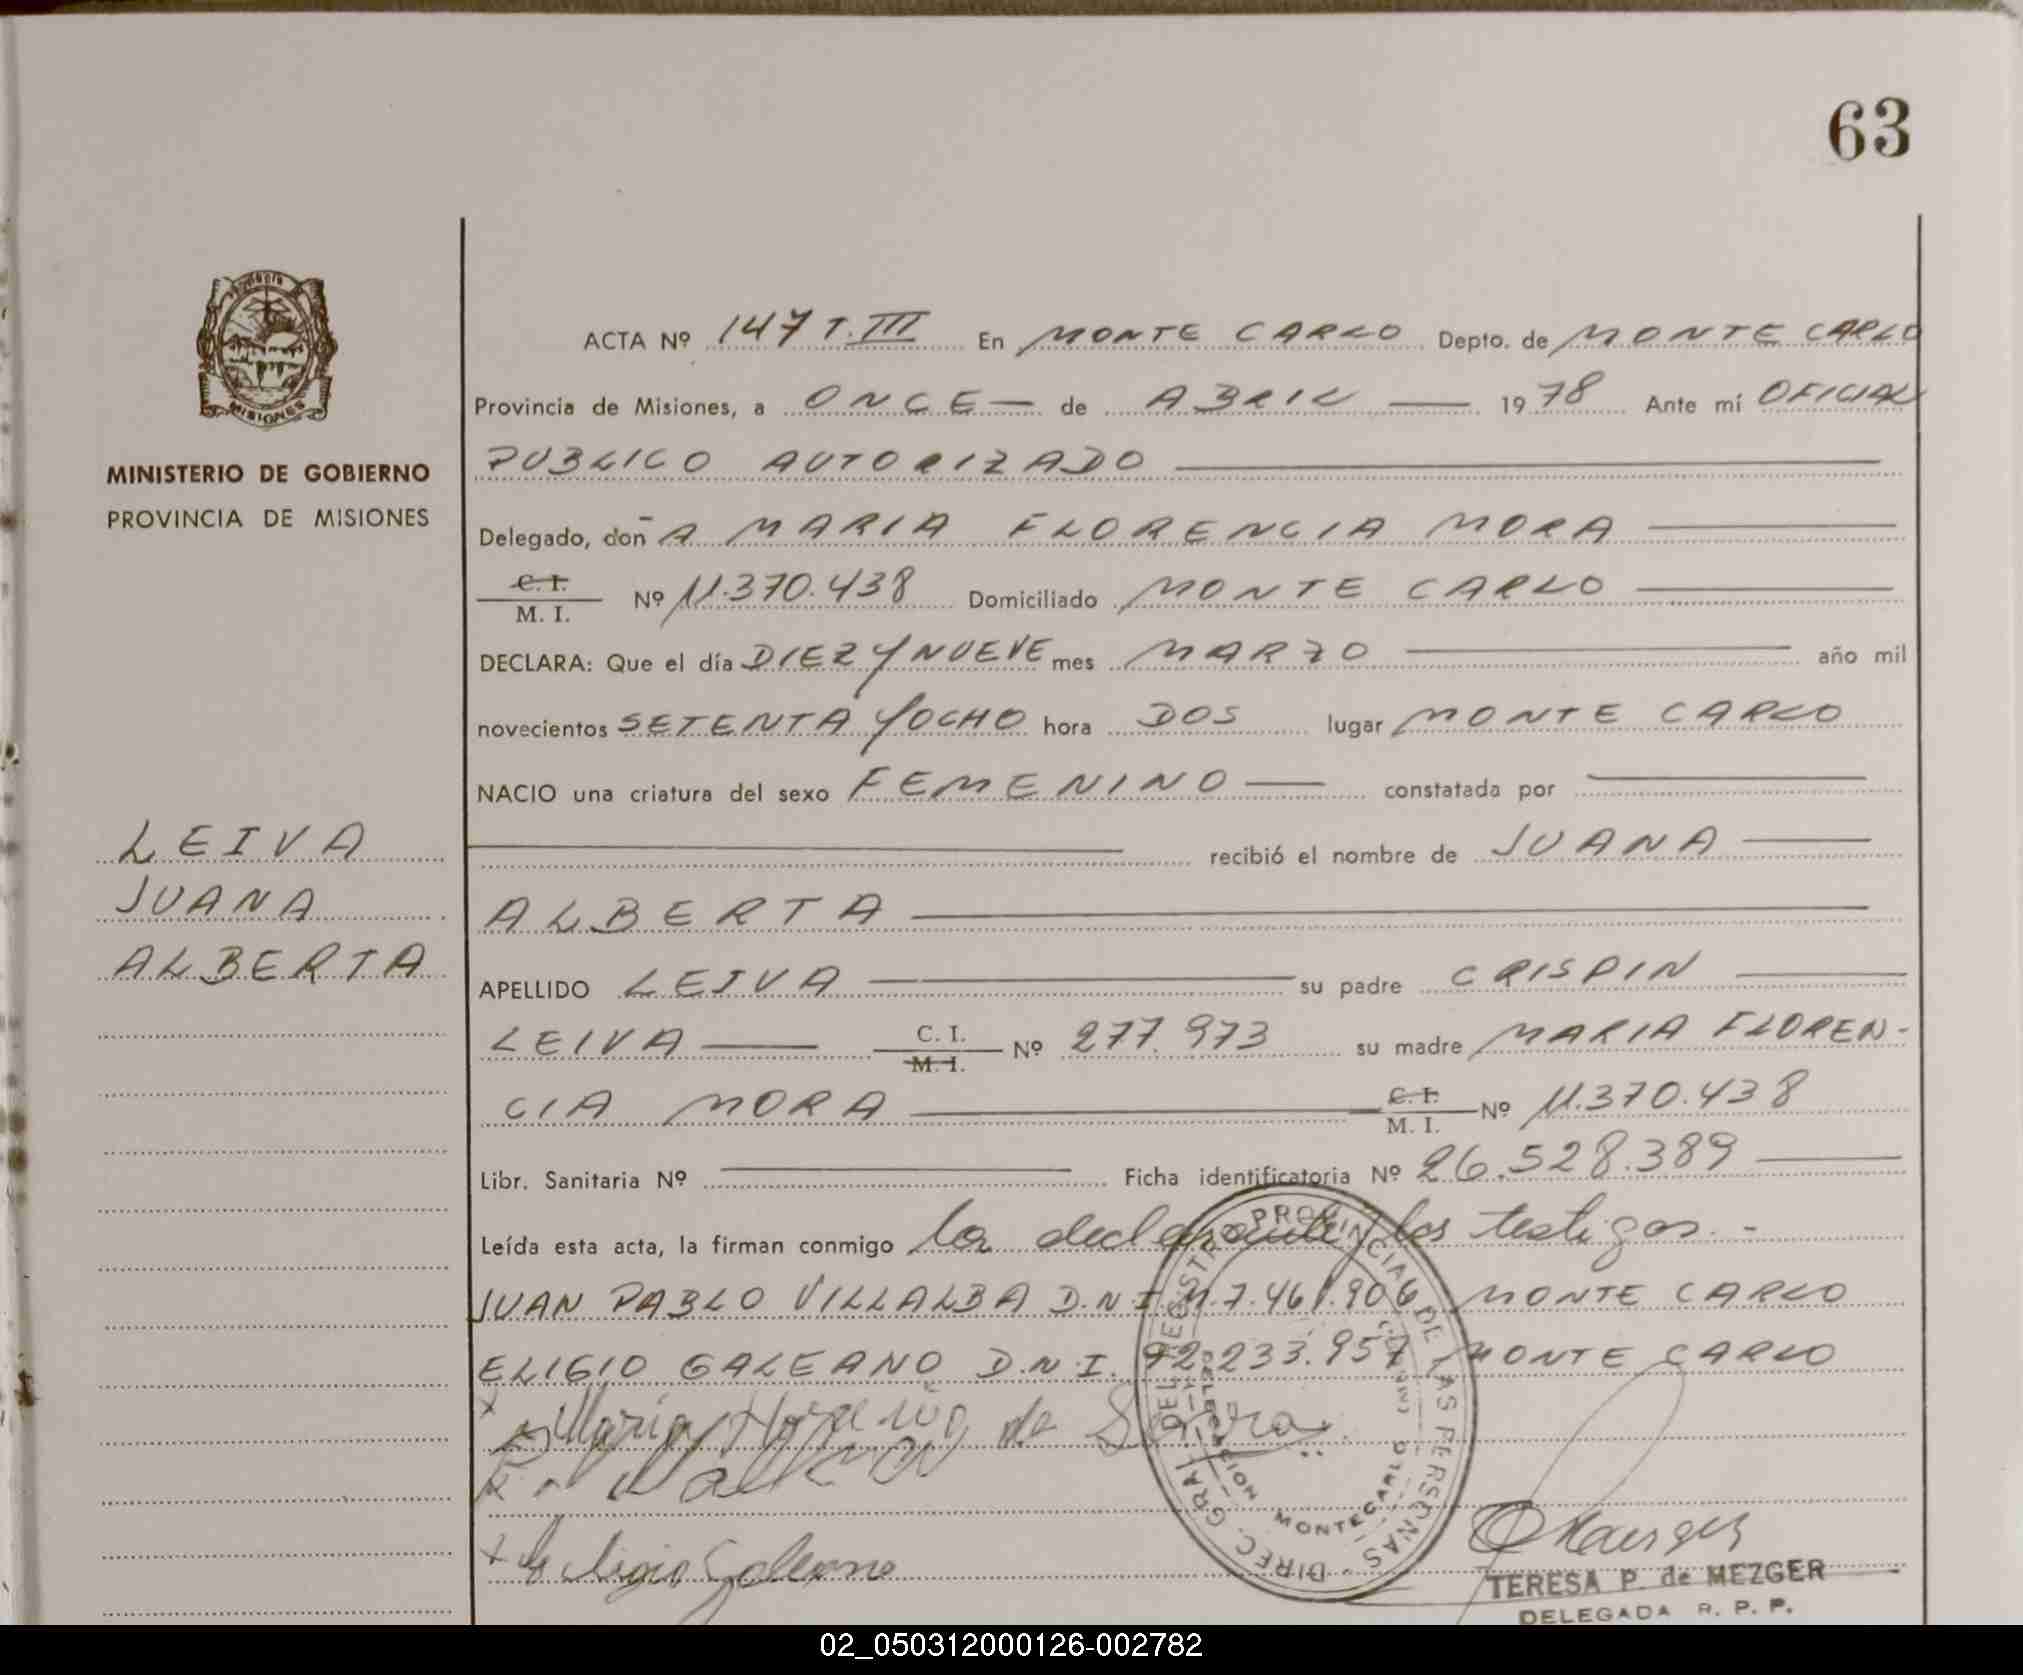 63
MINISTERIO DE GOBIERNO
PROVINCIA DE MISIONES
LEIVA
JUANA
ALBERTA
ACTA Nº 147 T. III En MONTE CARLO Depto. de MONTE CARLO
Provincia de Misiones, a ONCE — de ABRIL — 1978 Ante mí OFICIAL
PUBLICO AUTORIZADO
Delegado, doña MARIA FLORENCIA MORA
C. I.
M. I. Nº 11.370.438 Domiciliado MONTE CARLO
DECLARA: Que el día DIEZ Y NUEVE mes MARZO año mil
novecientos SETENTA Y OCHO hora DOS lugar MONTE CARLO
NACIO una criatura del sexo FEMENINO — constatada por
recibió el nombre de JUANA
ALBERTA
APELLIDO LEIVA su padre CRISPIN
LEIVA — C. I. M. I. Nº 277.973 su madre MARIA FLOREN-
CIA MORA C. I. M. I. Nº 11.370.438
Libr. Sanitaria Nº Ficha identificatoria Nº 26.528.389
Leída esta acta, la firman conmigo la declarante y los testigos.-
JUAN PABLO VILLALBA D.N.I. M.7.461.906 MONTE CARLO
ELIGIO GALEANO D.N.I. 92.233.957 MONTE CARLO
Eligio Galeano
DIREC. GRAL. DEL REGISTRO PROVINCIAL DE LAS PERSONAS
DELEGACION MONTECARLO (MISIONES)
TERESA P. de MEZGER
DELEGADA R. P. P.
MISIONES
02_050312000126-002782